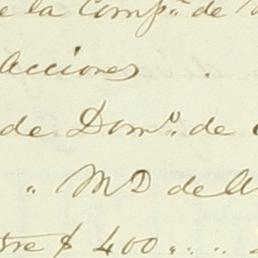 de la Comp.ª de
acciones
de Dom.º de
" MD de
tre $ 400 " . .